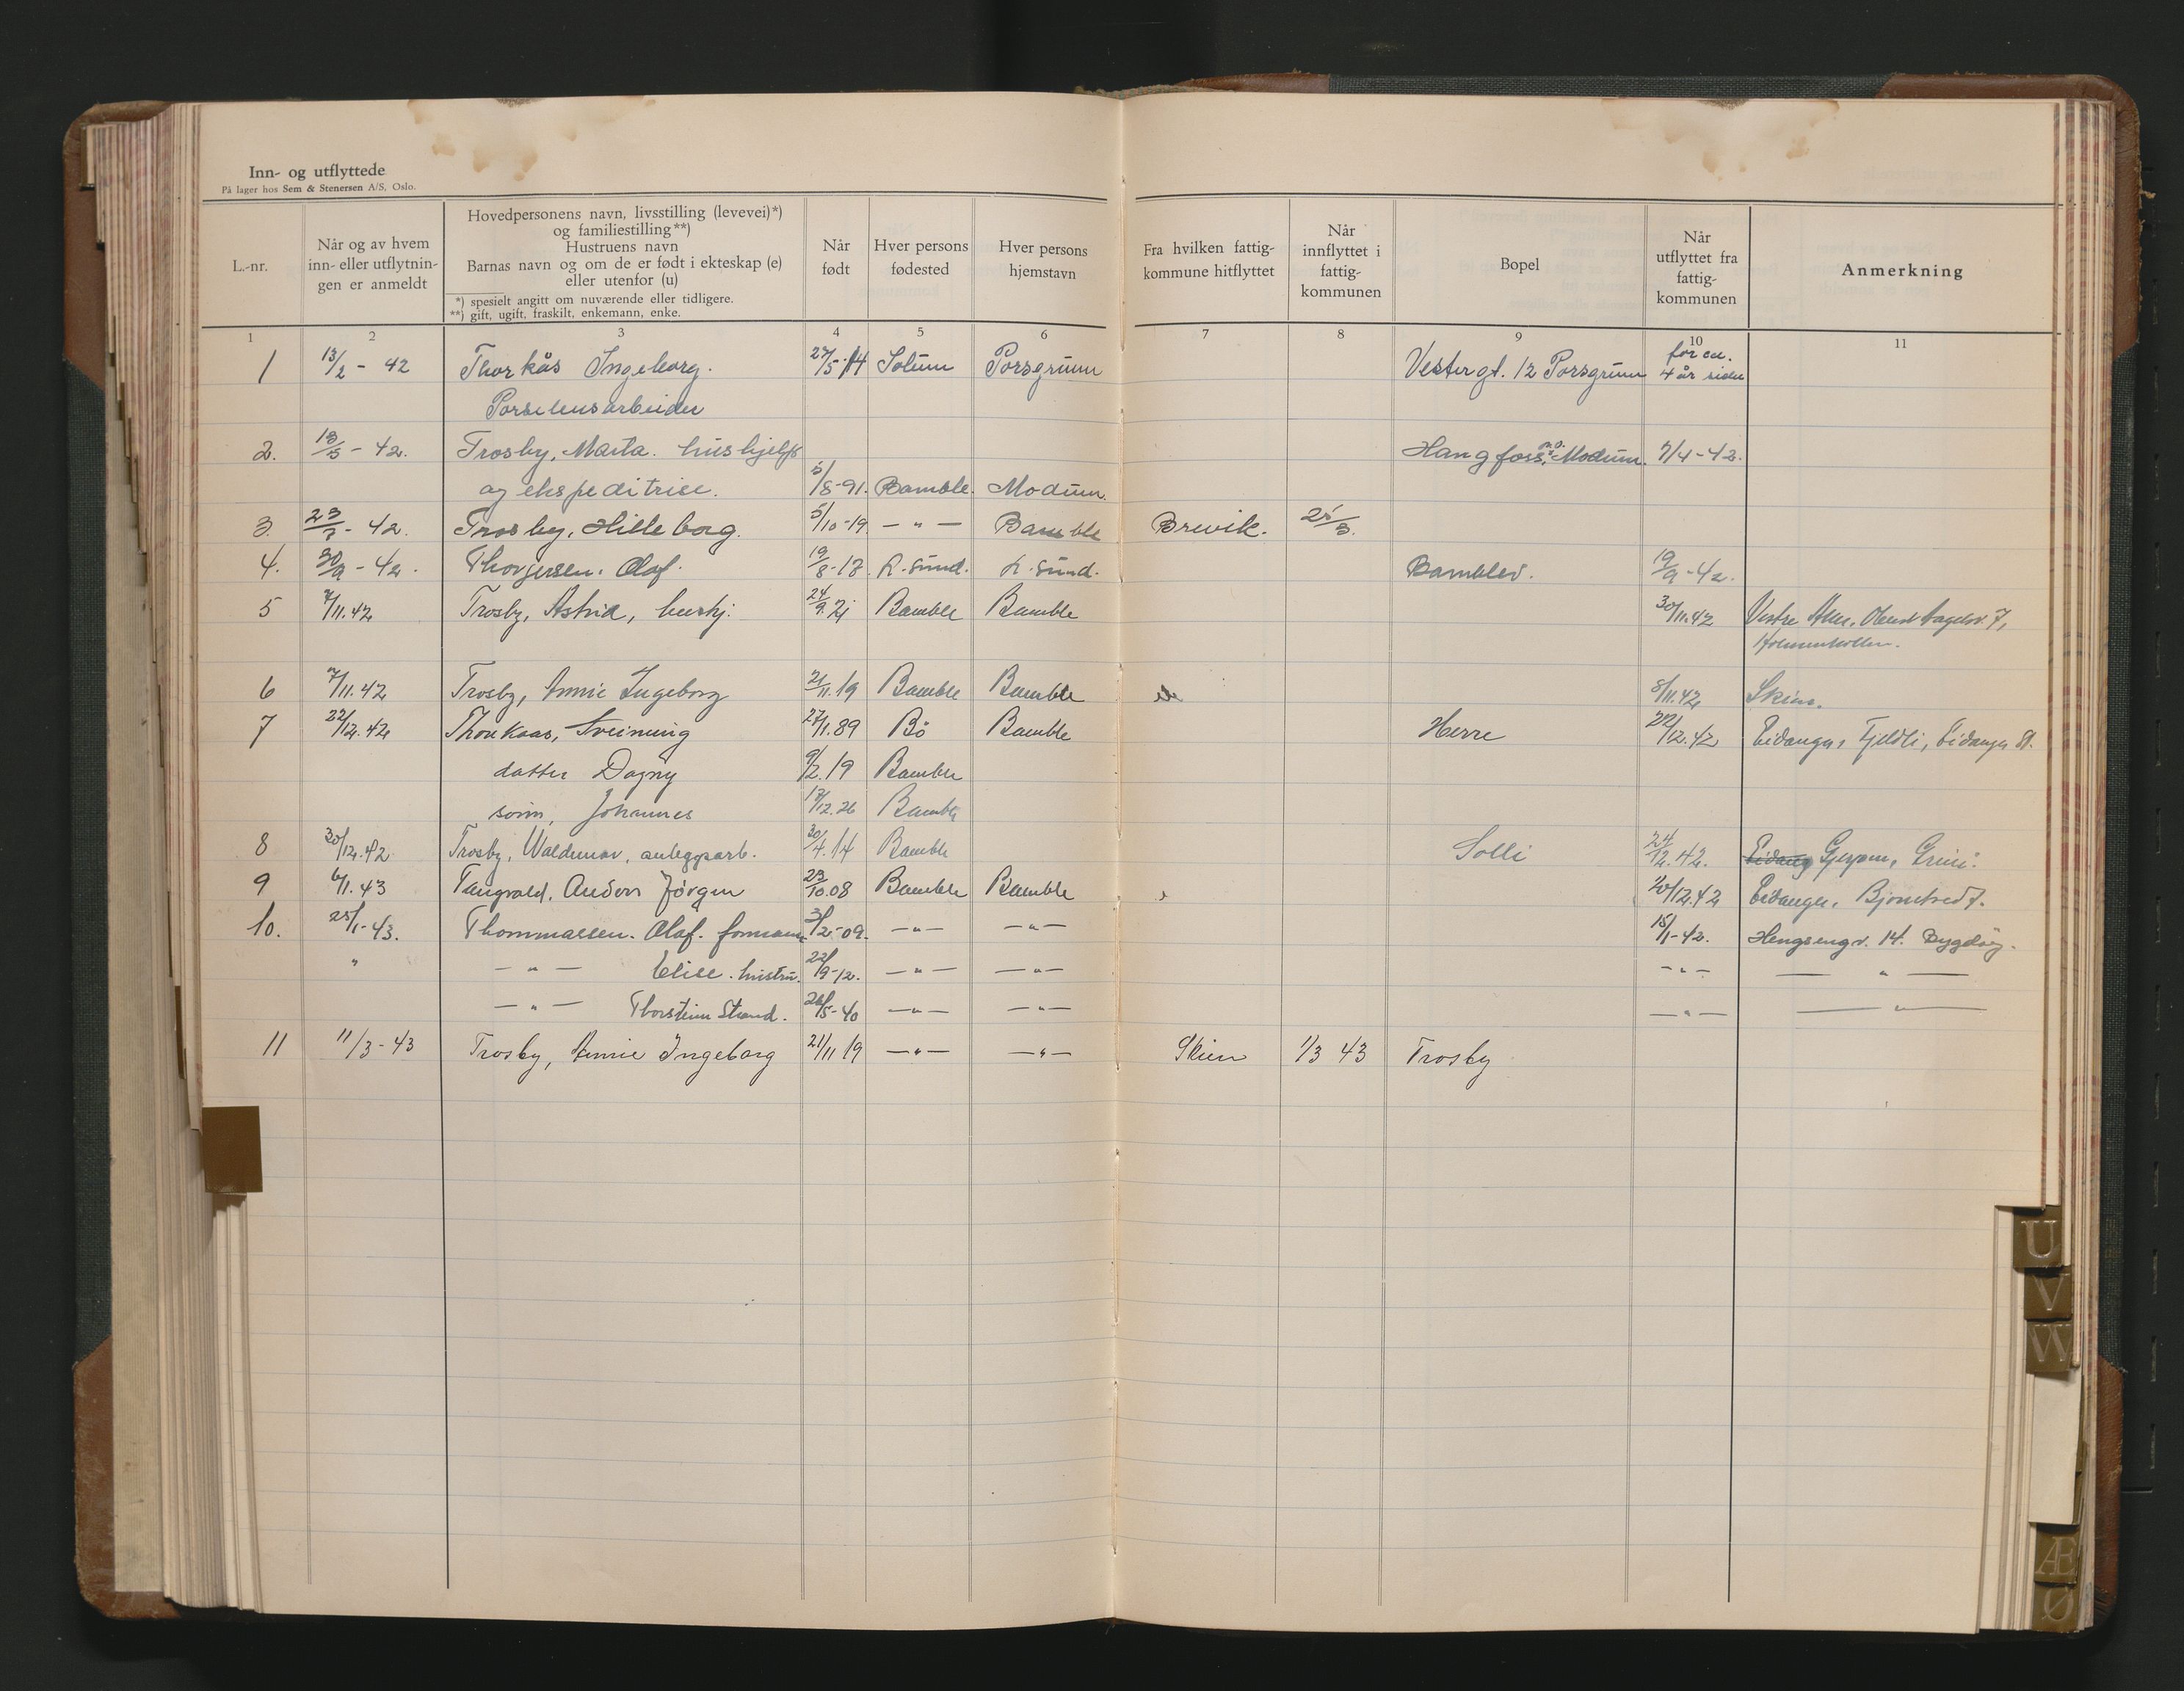 Inn- og utflyttede
På lager hos Sem & Stenersen A/S, Oslo.
L.-nr.
Når og av hvem
inn- eller utflytnin-
gen er anmeldt
Hovedpersonens navn, livsstilling (levevei)*)
og familiestilling**)
Hustruens navn
Barnas navn og om de er født i ekteskap (e)
eller utenfor (u)
*) spesielt angitt om nuværende eller tidligere.
**) gift, ugift, fraskilt, enkemann, enke.
Når
født
Hver persons
fødested
Hver persons
hjemstavn
Fra hvilken fattig-
kommune hitflyttet
Når
innflyttet i
fattig-
kommunen
Bopel
Når
utflyttet fra
fattig-
kommunen
Anmerkning
1 2 3 4 5 6 7 8 9 10 11
1 13/2 - 42 Thorkås Ingeborg. 27/5-14 Solum Porsgrunn Vestergt. 12 Porsgrunn for ca. 4 år siden
Porselensarbeider
2. 13/5 - 42. Trosby, Marta. hushjelp Haugfoss, p.o. Modum. 7/4-42.
og ekspeditrise. 5/8-91. Bamble. Modum.
3. 23/3 - 42. Trosby, Hilleborg. 5/10-19. — " — Bamble Brevik. 25/3.
4. 30/9 - 42. Thorjersen. Olaf. 19/8-13. L. sund. L. sund. Bamblev. 19/9-42.
5 7/11.42 Trosby, Astrid, hushj. 24/9.21 Bamble Bamble 30/11.42 Vestre Aker,
Holmenkollen.
6 7/11.42 Trosby, Annie Ingeborg 21/11.19 Bamble Bamble 8/11.42 Skien.
7 22/12.42 Thorkaas, Sveinung 27/1.89 Bö Bamble Herre 22/12.42 Eidanger, Fjeldli, Eidanger St.
datter Dagny 9/2.19 Bamble
sönn, Johannes 13/12.26 Bamble
8 30/12.42 Trosby, Waldemar, anleggsarb. 30/4.14 Bamble Solli 24/12.42. Eidang Gjerpen, Grini.
9 6/1.43 Tangvald, Anders Jörgen 23/10.08 Bamble Bamble 20/12.42 Eidanger, Bjørntvedt.
10. 25/1-43. Thommassen. Olaf. formann 3/2-09. — " — — " — 15/1-42. Hengsengv. 14. Bygdöy.
" — " — Elise. hustru. 22/9-12. — " — — " — — " — — " —
— " — Thorstein Strand. 26/5-40 — " — — " — — " — — " —
11 11/3-43 Trosby, Annie Ingeborg 21/11 19 — " — — " — Skien 1/3 43 Trosby
U
V
W
Æ
Ø